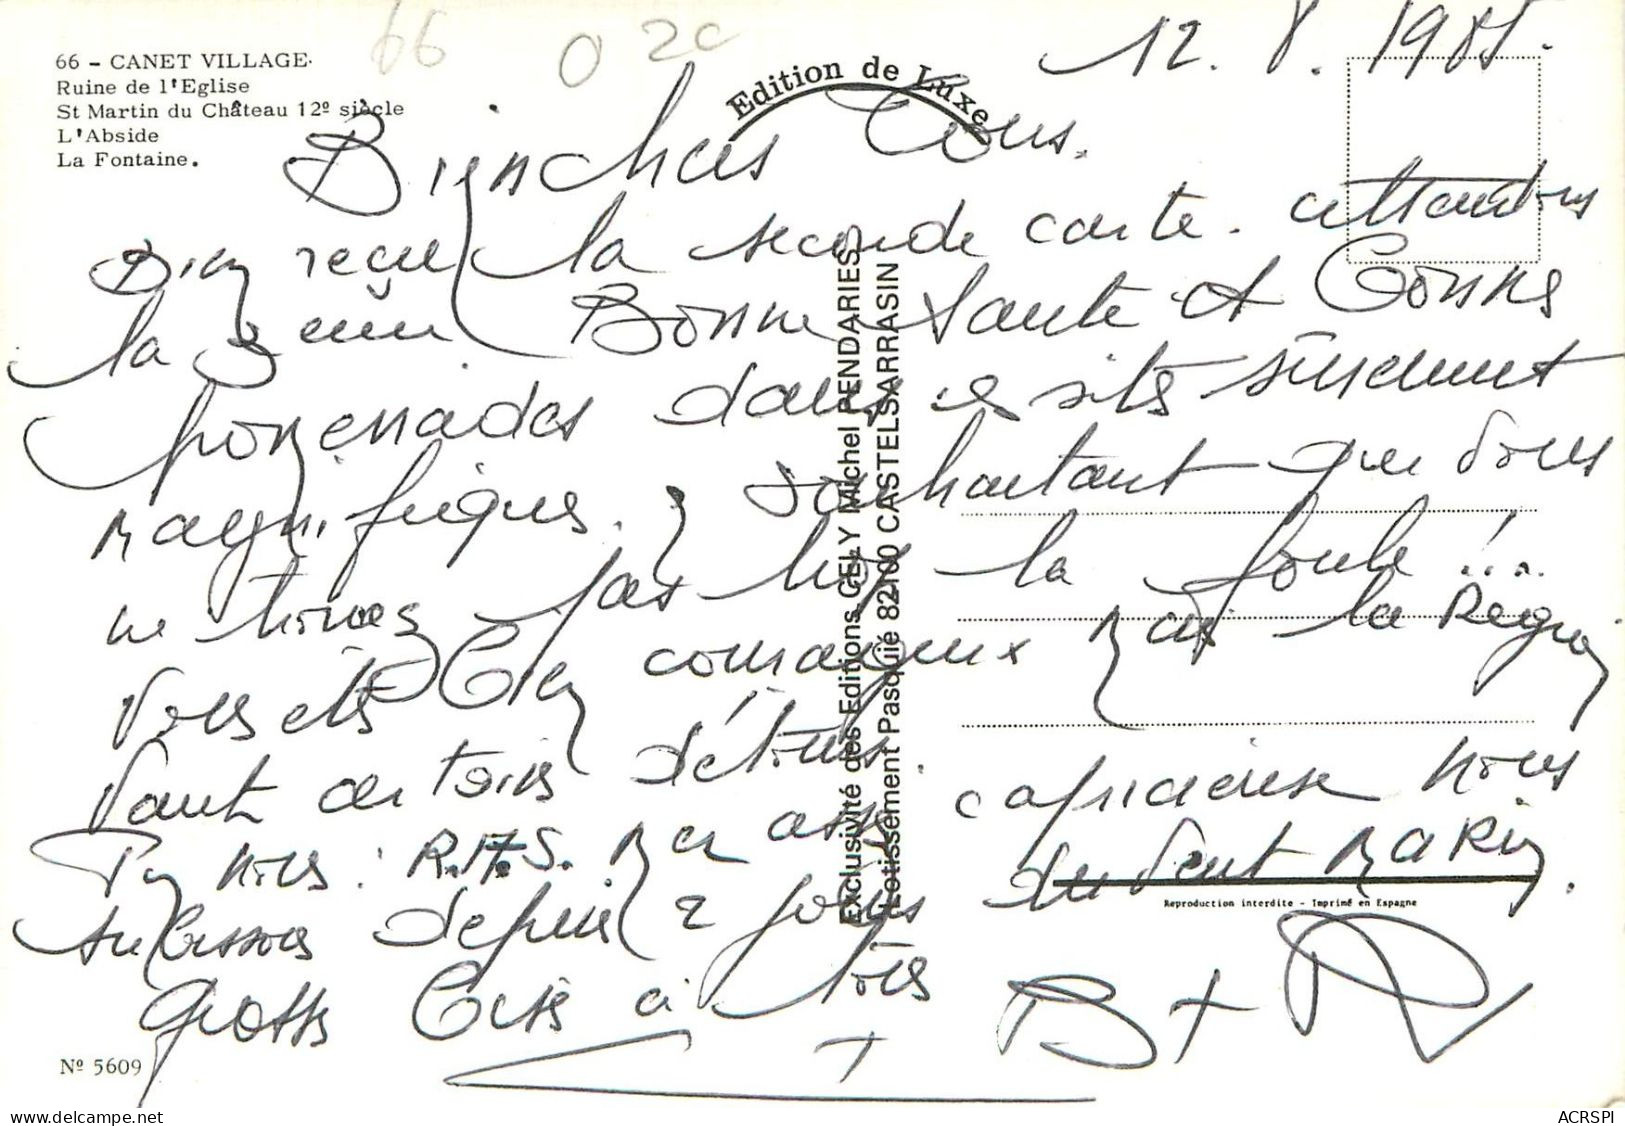 66 - CANET VILLAGE.
Ruine de l'Eglise
St Martin du Château 12º siècle
L'Abside
La Fontaine.
66 0 20
Edition de Luxe
12. 8. 19
Bien chers tous.
Bien reçu la seconde carte. attendons
la 3eme Bonne sante et bonnes
promenades dans ces sites sûrement
magnifiques. souhaitant que vous
ne trouvez pas trop la foule!...
Vous etes bien courageux mais la Région
vaut certains détours.
Pour nous : R.A.S. Mer assez capricieuse nous
subissons depuis 2 jours du vent marin.
Grosses bises à tous
B + R
Exclusivité des Editions CELY Michel PENDARIES
Lotissement Pasquié 82100 CASTELSARRASIN
Reproduction interdite - Imprimé en Espagne
Nº 5609
www.delcampe.net
ACRSPI